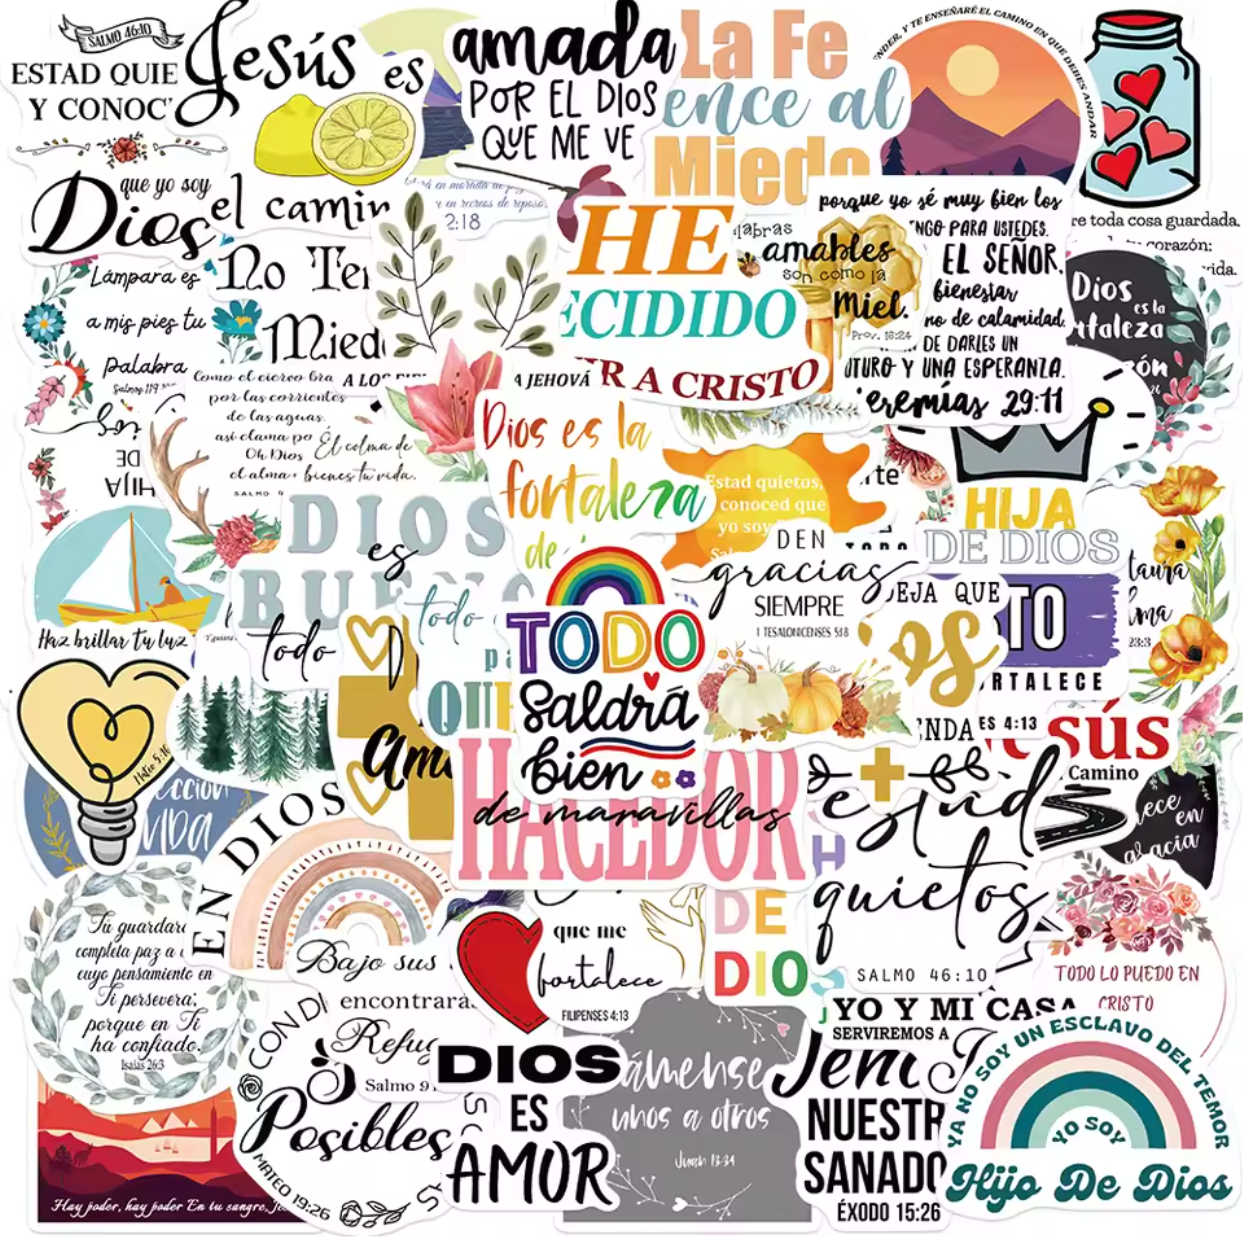 SALMO 46:10
ESTAD QUIE
Y CONOC
que yo soy
Dios
Jesús es
el camin
amada
POR EL DIOS
QUE ME VE
La Fe
ence al
Miedo
NDER, Y TE ENSEÑARÉ EL CAMINO EN QUE DEBES ANDAR
re toda cosa guardada,
corazón:
vida.
2:18
Lámpara es
a mis pies tu
palabra
Salmos 119
No Te
Mied
HE
ECIDIDO
R A CRISTO
labras
amables
son como la
Miel.
Prov. 16:24
porque yo sé muy bien los
NGO PARA USTEDES.
EL SEÑOR,
bienestar
no de calamidad,
DE DARLES UN
UTURO Y UNA ESPERANZA.
eremías 29:11
Dios
es la
rtaleza
zón
26
Como el ciervo bra
por las corrientes
de las aguas,
así clama po
Oh Dios
el alma
SALMO 4
El colma de
bienes tu vida.
A JEHOVÁ
HIJA
DE
Dios es la
fortaleza
de
Estad quietos,
conoced que
yo soy
rte
HIJA
DE DIOS
DIOS
es
BUENO
DEN
gracias
SIEMPRE
1 TESALONICENSES 5:18
DEJA QUE
os
ENDA
TO
RTALECE
ES 4:13
taura
lma
23:3
Haz brillar tu luz
Mateo 5:16
todo
Am
todo
pa
QUE
TODO
Saldrá
bien
HACEDOR
de maravillas
esús
Camino
ección
VIDA
ece
en
gracia
EN DIOS
estad
quietos
SALMO 46:10
H
DE
DIO
Tú guardará
completa paz a
cuyo pensamiento en
Ti persevera;
porque en Ti
ha confiado.
Isaías 26:3
Bajo sus
encontrará
Refug
Salmo 91
que me
fortalece
FILIPENSES 4:13
TODO LO PUEDO EN
CRISTO
YO Y MI CASA
SERVIREMOS A
Hay poder, hay poder En tu sangre,
CON DI
Posibles
MATEO 19:26
DIOS
ES
AMOR
ámense
unos a otros
Juan 13:34
Jeho
NUESTR
SANADO
ÉXODO 15:26
YA NO SOY UN ESCLAVO DEL TEMOR
YO SOY
Hijo De Dios